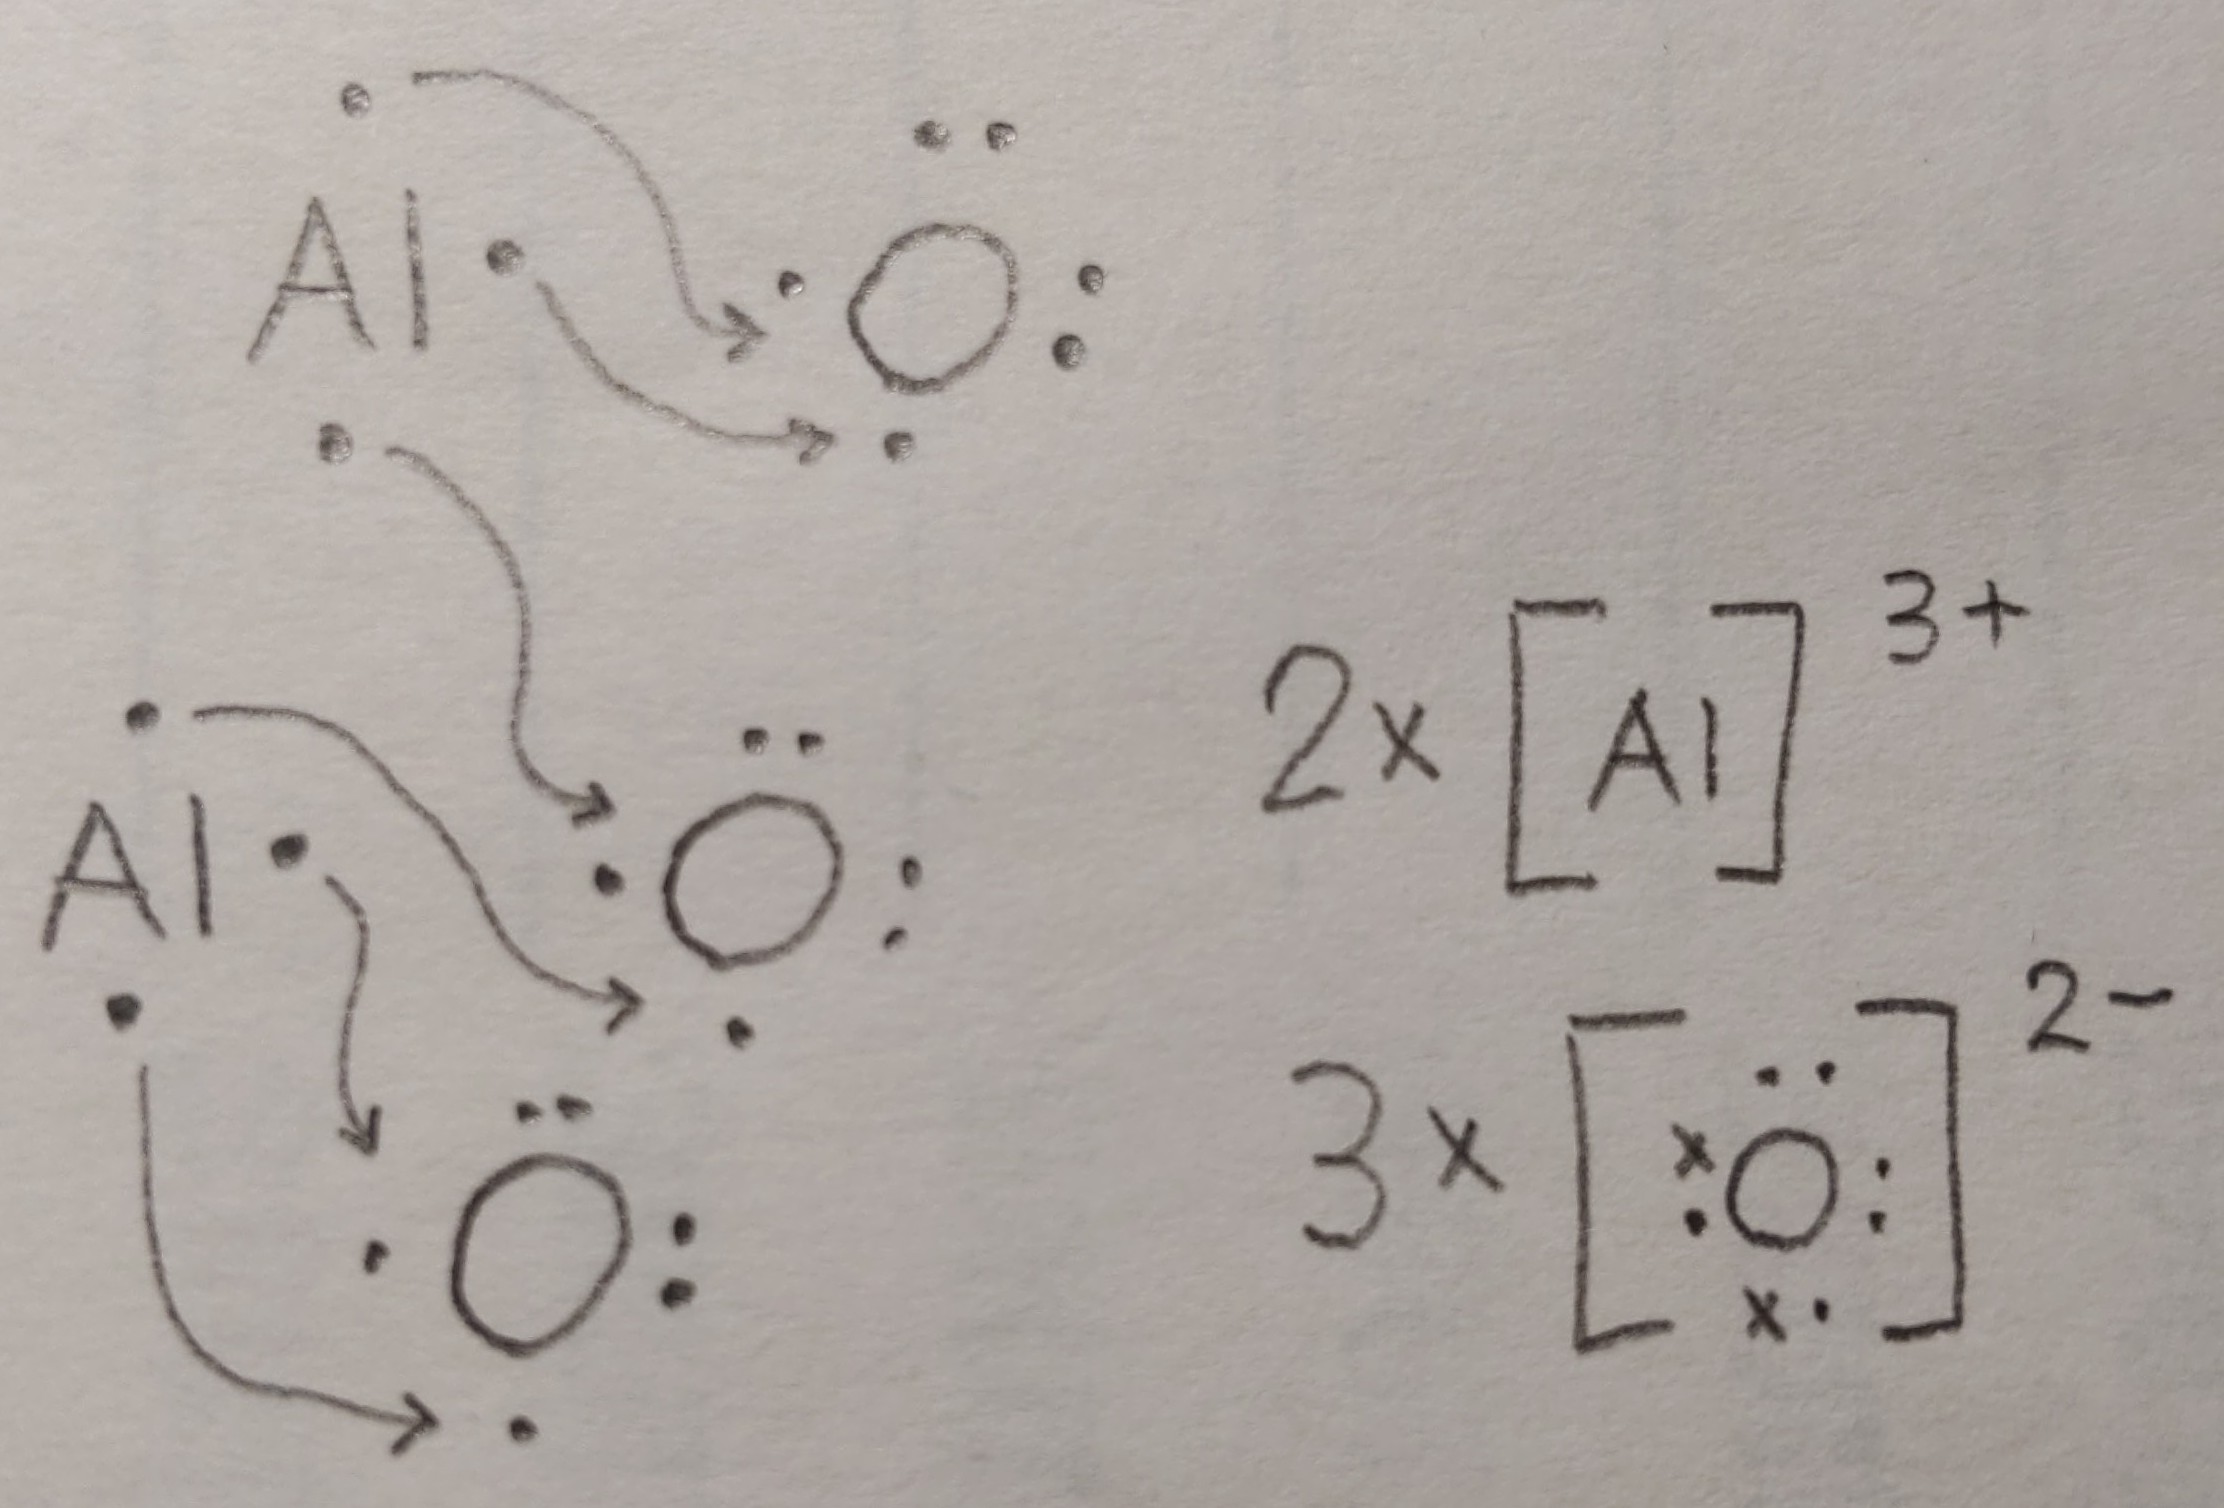 Al O
Al O
O
2x [Al]3+
3x [O]2-